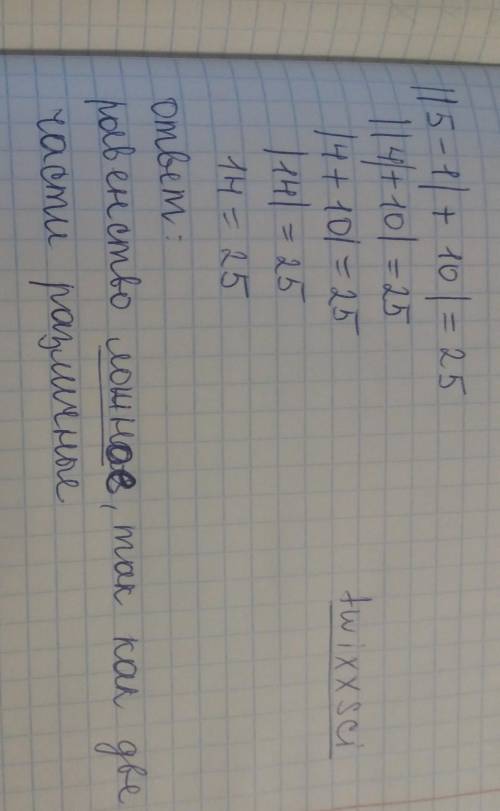 ||5-1|+10|=25
||4|+10|=25
|4+10|=25
|14|=25
14=25
ответ:
равенство ложное, так как две
части различные
twixxsci